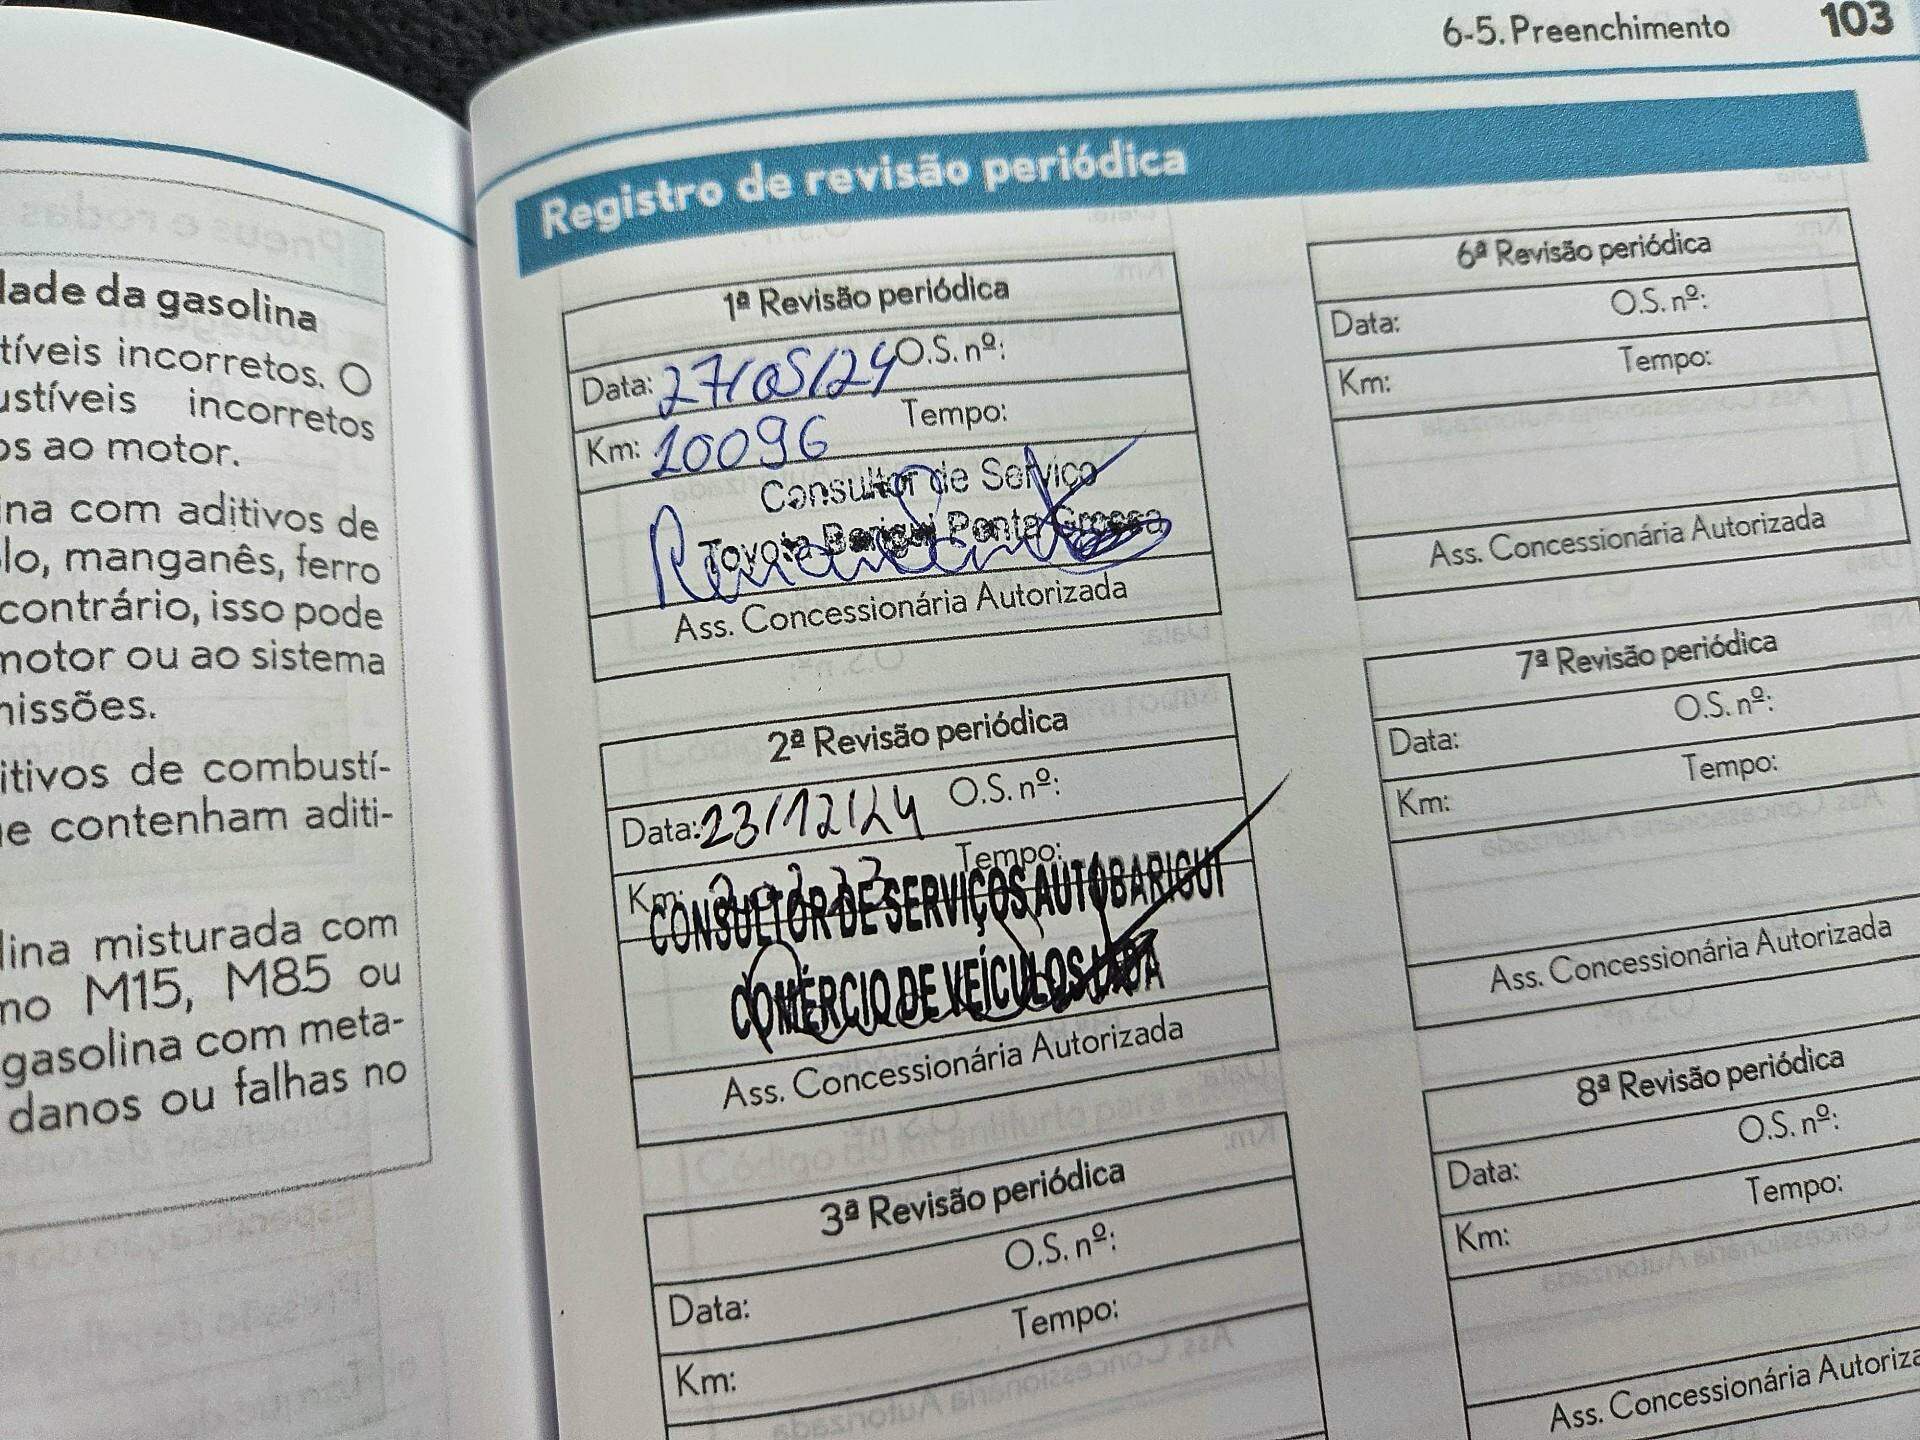 6-5. Preenchimento 103
lade da gasolina
tíveis incorretos. O
ustíveis incorretos
os ao motor.
ina com aditivos de
lo, manganês, ferro
contrário, isso pode
motor ou ao sistema
missões.
itivos de combustí-
ue contenham aditi-
lina misturada com
no M15, M85 ou
gasolina com meta-
danos ou falhas no
Registro de revisão periódica
1ª Revisão periódica
Data: 27/05/24 O.S. nº:
Km: 10096 Tempo:
Consultor de Serviço
Toyota Barigui Ponta Grossa
Ass. Concessionária Autorizada
2ª Revisão periódica
Data: 23/12/24 O.S. nº:
Km: Tempo:
CONSULTOR DE SERVIÇOS AUTOBARIGUI
COMÉRCIO DE VEÍCULOS LTDA
Ass. Concessionária Autorizada
3ª Revisão periódica
Data: O.S. nº:
Km: Tempo:
6ª Revisão periódica
Data: O.S. nº:
Km: Tempo:
Ass. Concessionária Autorizada
7ª Revisão periódica
Data: O.S. nº:
Km: Tempo:
Ass. Concessionária Autorizada
8ª Revisão periódica
Data: O.S. nº:
Km: Tempo:
Ass. Concessionária Autoriza